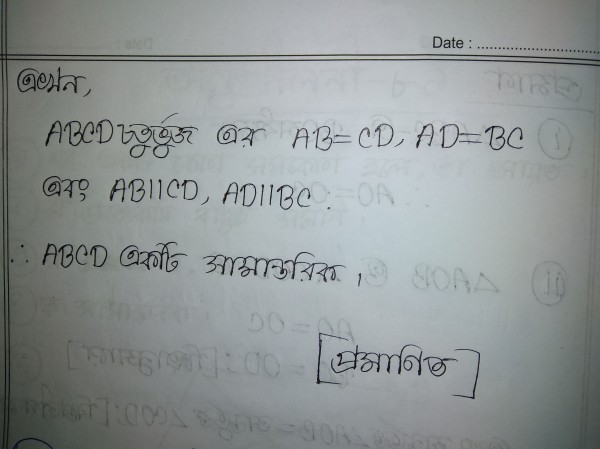 Date : ..............................
এখন,
ABCD চতুর্ভুজ এর AB=CD, AD=BC
এবং AB||CD, AD||BC.
∴ ABCD একটি সামান্তরিক,
[প্রমাণিত]